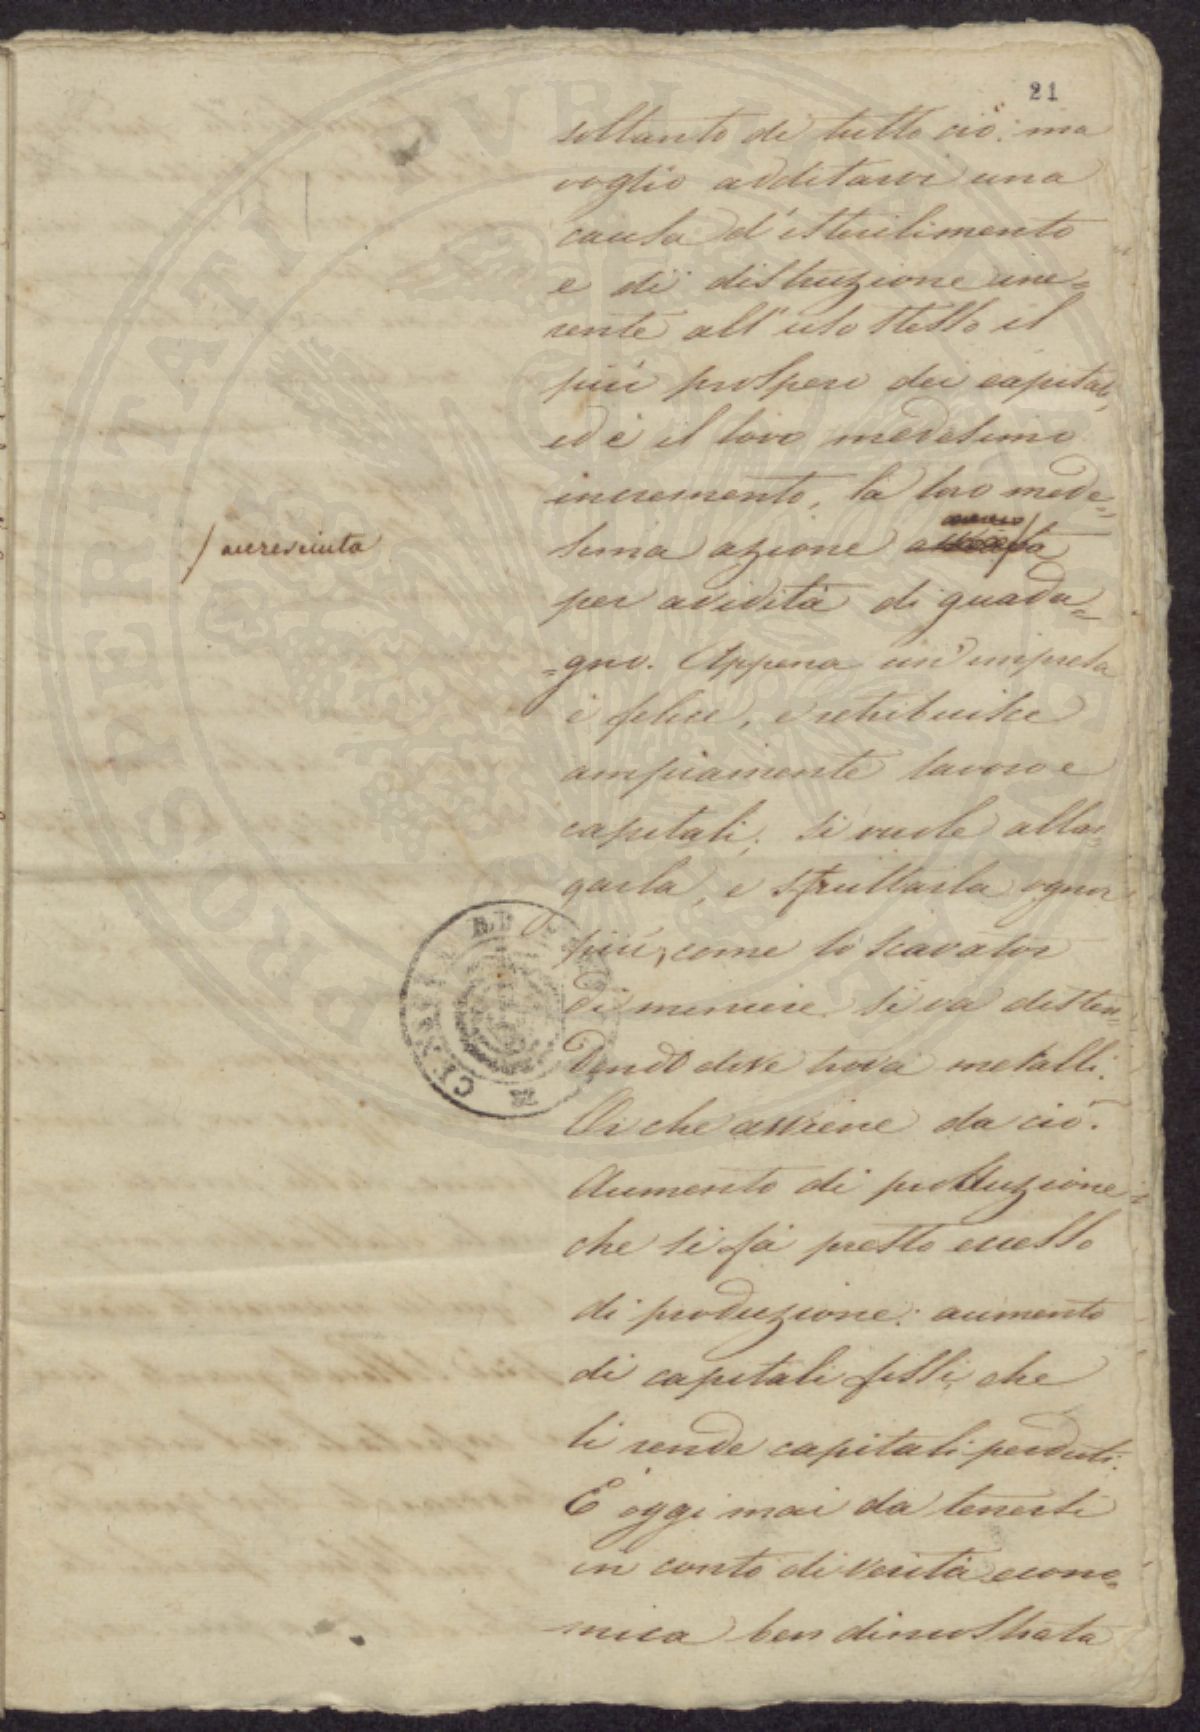 21
soltanto di tutto ciò: ma
voglio additarvi una
causa d'isterilimento
e di distruzione ine=
rente all'uso stesso il
più prospero dei capitali,
ed è il loro medesimo
incremento, la loro mede=
sima azione
/ accresciuta
per avidità di guada=
=gno. Appena un'impresa
è felice, e retribuisce
ampiamente lavoro e
capitali; si vuole allar=
garla, e sfruttarla ognor
più, come lo scavator
di miniere si va disten=
dendo dove trova metalli.
Or che avviene da ciò.
Aumento di produzione
che si fa presto eccesso
di produzione: aumento
di capitali fissi, che
li rende capitali perduti.
È oggi mai da tenersi
in conto di verità econo=
mica ben dimostrata
PROSPERITATI PVBLICAE